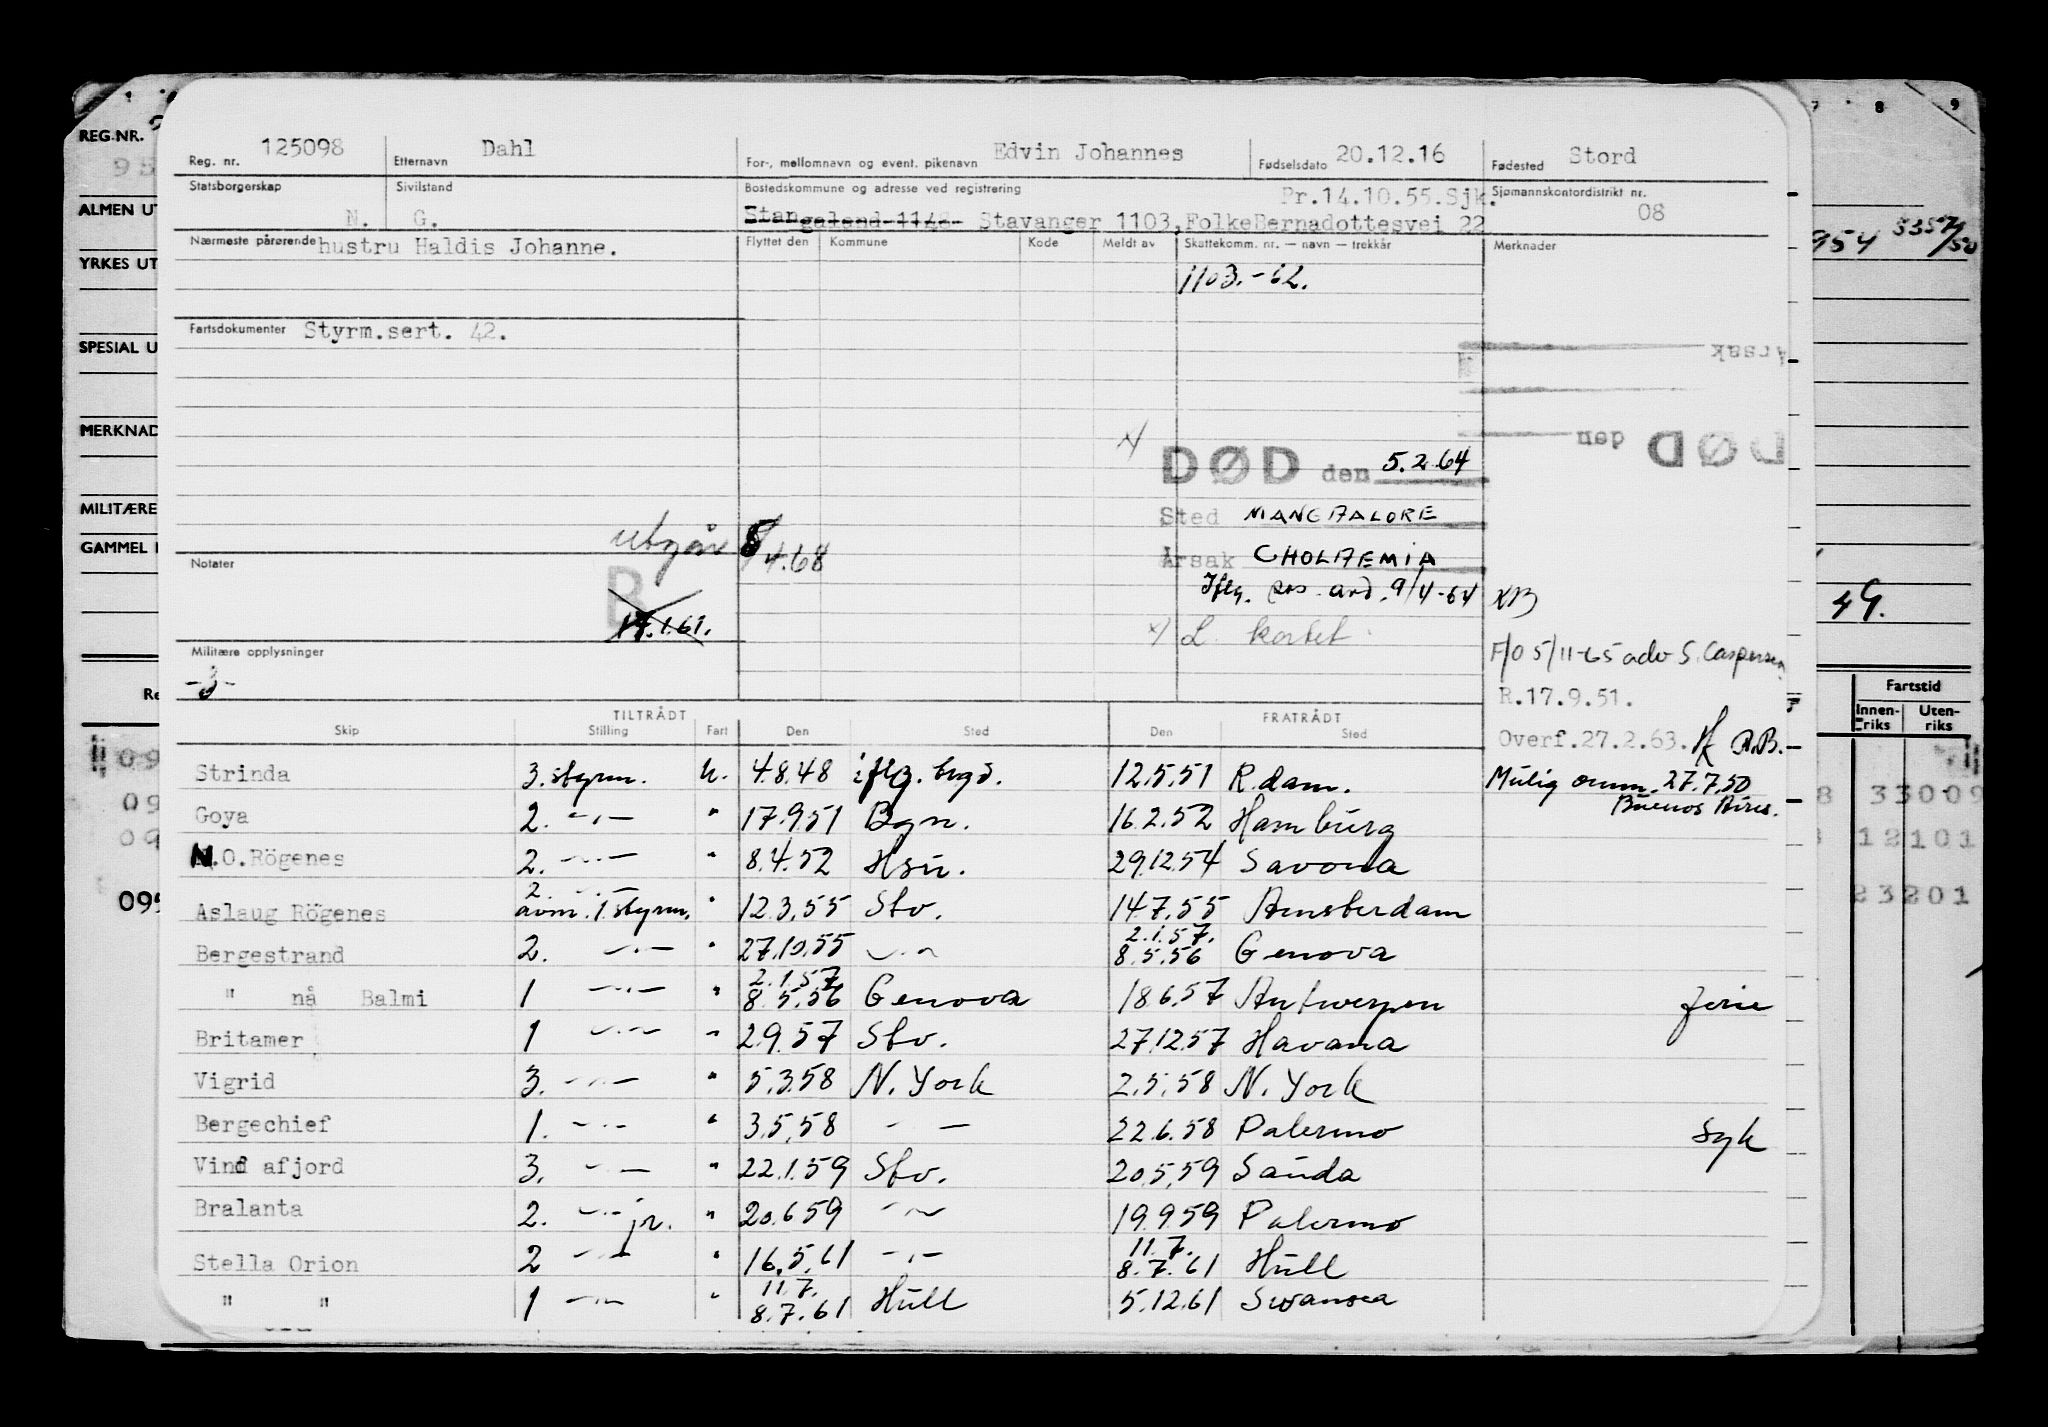 7 8 9
REG.NR.
95
ALMEN UT
YRKES UT
SPESIAL U
MERKNAD
MILITÆRE
GAMMEL
Reg. nr. 125098 Etternavn Dahl For-, mellomnavn og event. pikenavn Edvin Johannes Fødselsdato 20.12.16 Fødested Stord
Statsborgerskap Sivilstand Bostedskommune og adresse ved registrering Pr.14.10.55.Sjk. Sjømannskontordistrikt nr.
N. G. Stangaland 1148 Stavanger 1103, FolkeBernadottesvei 22 08
Nærmeste pårørende hustru Haldis Johanne. Flyttet den Kommune Kode Meldt av Skattekomm. nr. — navn — trekkår Merknader
1103.-62.
Fartsdokumenter Styrm.sert. 42.
Årsak
DØD den
x/ DØD den 5.2.64
Sted MANGALORE
utgår 8/4.68
Årsak CHOLAEMIA
Notater
Iflg. pos. ard. 9/4-64 XB
B
17.1.61.
x/ L. kortet
Militære opplysninger
F/O 5/11-65 adv S. Caspersen
-3-
R.17.9.51.
Overf.27.2.63. A.B.
TILTRÅDT FRATRÅDT
Skip Stilling Fart Den Sted Den Sted
Strinda 3. styrm. u. 4.8.48 iflg. bygd. 12.5.51 R.dam. Mulig omm. 27.7.50
Buenos Aires.
Goya 2. -"- " 17.9.51 Bgn. 16.2.52 Hamburg
N.O.Rögenes 2. -"- " 8.4.52 Hsu. 29.12.54 Savona
2. -"-
Aslaug Rögenes avm. 1. styrm. " 12.3.55 Stv. 14.7.55 Amsterdam
2.1.57.
Bergestrand 2. -"- " 27.10.55 -"- 8.5.56 Genova
2.1.57
" nå Balmi 1 -"- " 8.5.56 Genova 18.6.57 Antwerpen ferie
Britamer 1 -"- " 2.9.57 Stv. 27.12.57 Havana
Vigrid 3. -"- " 5.3.58 N. York 2.5.58 N. York
Bergechief 1. -"- " 3.5.58 - - 22.6.58 Palermo Syk
Vindafjord 3. -"- " 22.1.59 Stv. 20.5.59 Sauda
Bralanta 2. -"- jr. " 20.6.59 -"- 19.9.59 Palermo
11.7.
Stella Orion 2 -"- " 16.5.61 -"- 8.7.61 Hull
11.7.
" " 1 -"- " 8.7.61 Hull 5.12.61 Swansea
954
4G.
Fartstid
Innen-
riks
Uten-
riks
33009
12101
23201